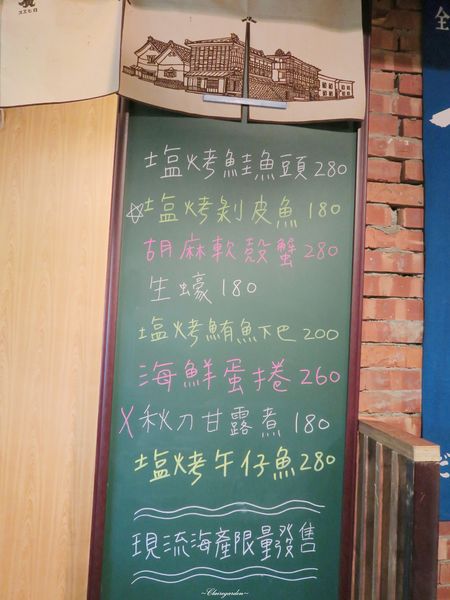 塩烤鮭魚頭280
☆塩烤剝皮魚180
胡麻軟殼蟹280
生蠔180
塩烤鮪魚下巴200
海鮮蛋捲260
X秋刀甘露煮180
塩烤午仔魚280
現流海產限量發售
~Clairegarden~
全